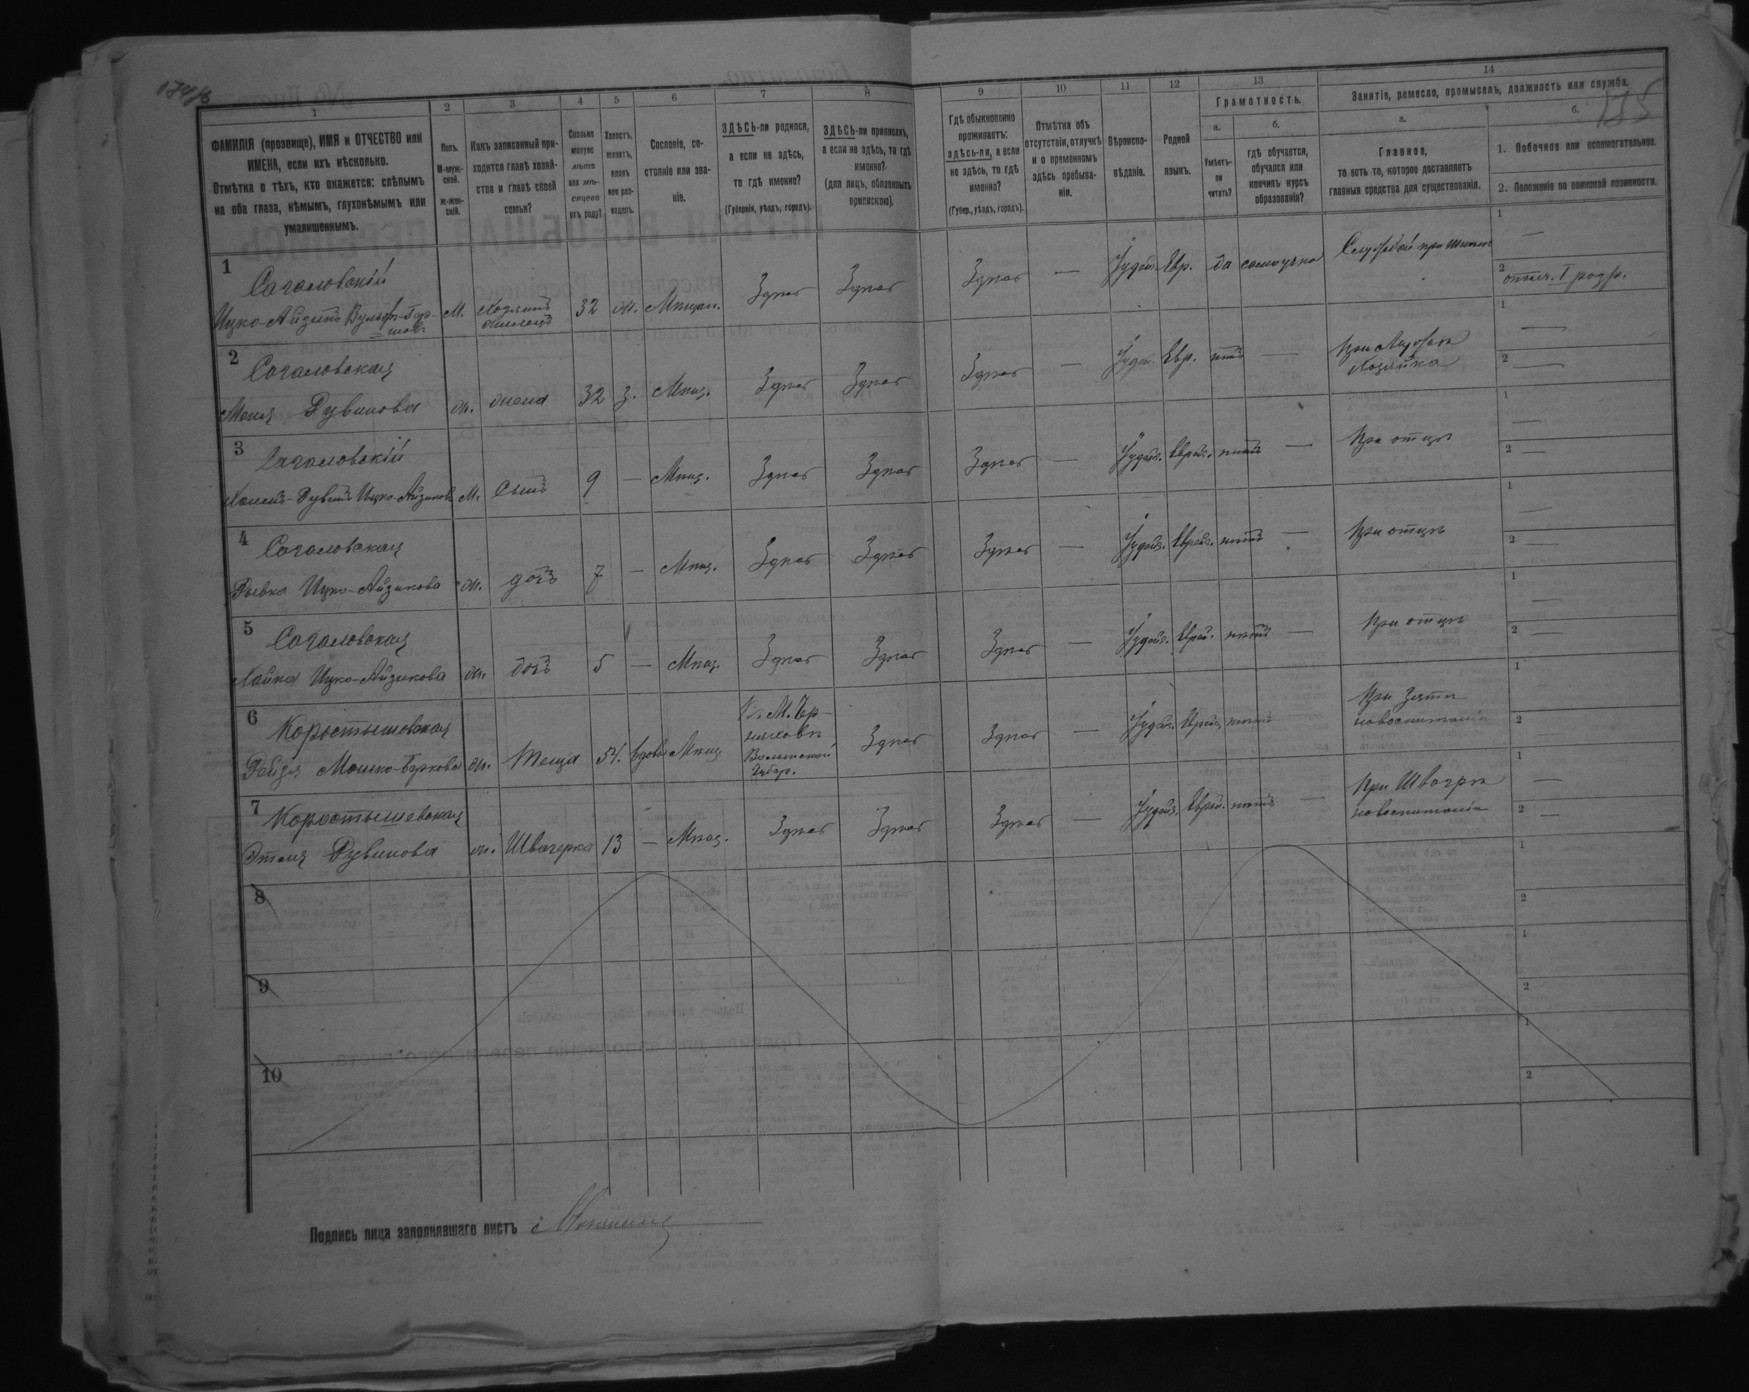 1 2 3 4 5 6 7 8 9 10 11 12 13 14
ФАМИЛІЯ (прозвище), ИМЯ и ОТЧЕСТВО или
ИМЕНА, если ихъ нѣсколько.
Отмѣтка о тѣхъ, кто окажется: слѣпымъ
на оба глаза, нѣмымъ, глухонѣмымъ или
умалишеннымъ.
Полъ.
М-муж-
ской.
ж-жен-
скій.
Какъ записанный при-
ходится главѣ хозяй-
ства и главѣ своей
семьи?
Сколько
минуло
лѣтъ
или мѣ-
сяцевъ
отъ роду?
Холостъ,
женатъ,
вдовъ
или раз-
веденъ.
Сословіе, со-
стояніе или зва-
ніе.
ЗДѢСЬ-ли родился,
а если не здѣсь,
то гдѣ именно?
(Губернія, уѣздъ, городъ).
ЗДѢСЬ-ли приписанъ,
а если не здѣсь, то гдѣ
именно?
(для лицъ, обязанныхъ
припискою).
Гдѣ обыкновенно
проживаетъ:
здѣсь-ли, а если
не здѣсь, то гдѣ
именно?
(Губер., уѣздъ, городъ).
Отмѣтка объ
отсутствіи, отлучкѣ
и о временномъ
здѣсь пребыва-
ніи.
Вѣроиспо-
вѣданіе.
Родной
языкъ.
Грамотность.
а.
Умѣетъ-
ли
читать?
б.
гдѣ обучается,
обучался или
кончилъ курсъ
образованія?
Занятіе, ремесло, промыселъ, должность или служба.
а.
Главное,
то есть то, которое доставляетъ
главныя средства для существованія.
б.
1. Побочное или вспомогательное.
2. Положеніе по воинской повинности.
1 Сагаловскій
Ицко-Айзикъ Вульф-Бер-
ковъ М. Хозяинъ 32 ж. Мѣщан. Здѣсь Здѣсь Здѣсь — Іудей. Евр. да самоучка
2
Сагаловская
Рувинова ж. жена 32 з. Мѣщ. Здѣсь Здѣсь Здѣсь — Іудей. Евр. нѣтъ —
Хозяйка
3 Сагаловскій
Ицко-Айзиковъ М. Сынъ 9 — Мѣщ. Здѣсь Здѣсь Здѣсь — Іудей. Еврей. нѣтъ — При отцѣ
4 Сагаловская
Ривка Ицко-Айзикова ж. дочь 7 — Мѣщ. Здѣсь Здѣсь Здѣсь — Іудей. Еврей. нѣтъ — При отцѣ
5 Сагаловская
Хайка Ицко-Айзикова ж. дочь 5 — Мѣщ. Здѣсь Здѣсь Здѣсь — Іудей. Еврей. нѣтъ — При отцѣ
6 Коростышевская
Рейзя Мошко-Беркова ж. Теща 54. вдова Мѣщ.
Въ М. Чер-
няховѣ
Волынской
Губер.
Здѣсь Здѣсь — Іудей. Еврей. нѣтъ
При Зятѣ
7 Коростышевская
Этля Рувинова ж. Швагерка 13 — Мѣщ. Здѣсь Здѣсь Здѣсь — Іудей. Еврей. нѣтъ —
При Швагрѣ
8
9
10
Подпись лица заполнявшаго листъ